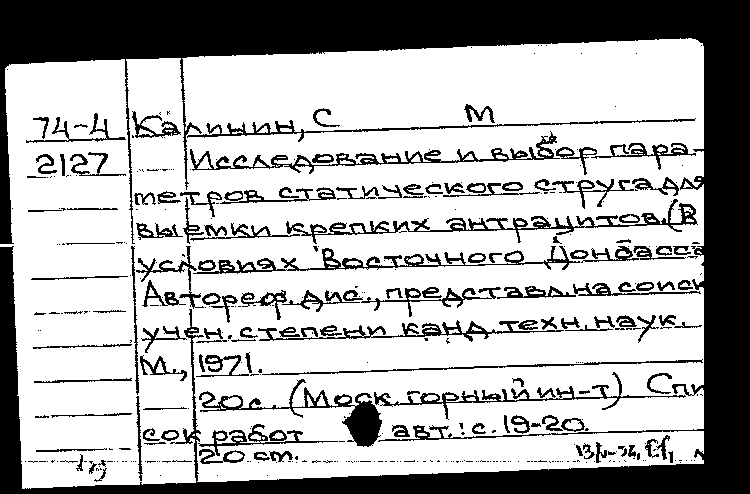 74-4 Калинин, С М
2127 Исследование и выбор пара-
метров статического струга для
выемки крепких антрацитов. (В
условиях Восточного Донбасса
Автореф. дис., представл. на соиск
учен. степени канд. техн. наук.
М., 1971.
20 с. (Моск. горный ин-т) Спи
сок работ авт.: с. 19-20.
20 см.